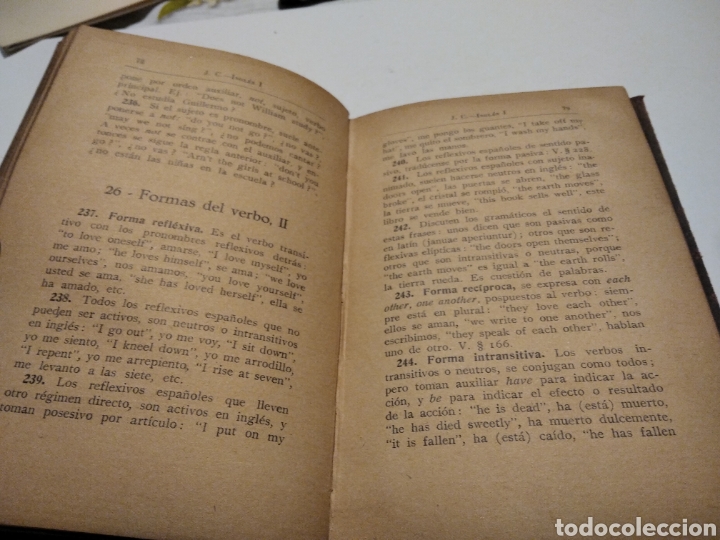 J. C.—Inglés I
pone por orden auxiliar, not, sujeto, verbo
principal. Ej: "Does not William study?"
¿No estudia Guillermo?
236. Si el sujeto es pronombre, suele ante-
ponerse a not: "do you not go?", ¿no vas?
"may we not sing?", ¿no podemos cantar?
A veces not se contrae con el auxiliar, y en-
tonces se sigue la regla anterior. "don't you
go?", ¿no vas? "Arn't the girls at school?",
¿no están las niñas en la escuela?
26 - Formas del verbo, II
237. Forma refléxiva. Es el verbo transi-
tivo con los pronombres reflexivos detrás:
"to love oneself", amarse, "I love myself, yo
me amo: "he loves himself", se ama; "we love
ourselves", nos amamos, "you love yourself",
usted se ama, "she has loved herself", ella se
ha amado, etc.
238. Todos los reflexivos españoles que no
pueden ser activos, son neutros o intransitivos
en inglés: "I go out", yo me voy, "I sit down",
yo me siento, "I kneel down", yo me arrodillo,
"I repent", yo me arrepiento, "I rise at seven",
me levanto a las siete, etc.
239. Los reflexivos españoles que lleven
otro régimen directo, son activos en inglés, y
toman posesivo por artículo: "I put on my
J. C.—Inglés I
gloves", me pongo los guantes, "I take off my
me quito el sombrero, "I wash my hands",
me lavo las manos.
240. Los reflexivos españoles de sentido pa-
sivo, tradúcense por la forma pasiva. V. § 228.
241. Los reflexivos españoles con sujeto inani-
mado, suelen hacerse neutros en inglés: "the
doors open", las puertas se abren, "the glass
broke", el cristal se rompió, "the earth moves",
la tierra se mueve, "this book sells well", este
libro se vende bien.
242. Discuten los gramáticos el sentido de
estas frases: unos dicen que son pasivas como
en latín (januae aperiuntur); otros que son re-
flexivas elípticas: "the doors open themselves";
otros que son intransitivas o neutras, porque
"the earth moves" es igual a "the earth rolls",
la tierra rueda. Es cuestión de palabras.
243. Forma recíproca, se expresa con each
other, one another, pospuestos al verbo: siem-
pre está en plural: "they love each other",
ellos se aman, "we write to one another", nos
escribimos, "they speak of each other", hablan
uno de otro. V. § 166.
244. Forma intransitiva. Los verbos in-
transitivos o neutros, se conjugan como todos;
pero toman auxiliar have para indicar la ac-
ción, y be para indicar el efecto o resultado
de la acción: "he is dead", ha (está) muerto,
"he has died sweetly", ha muerto dulcemente,
"it is fallen", ha (está) caído, "he has fallen
todocoleccion